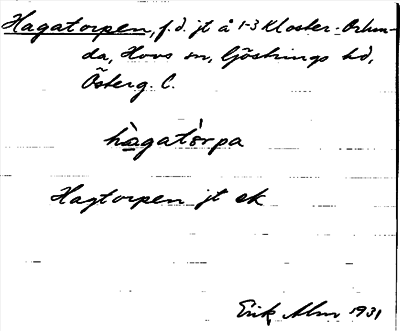 Hagatorpen, f.d. jt å 1-3 Kloster-Orlun-
da, Hovs sn, Göstrings hd,
Österg. C.
hàgatòrpa
Hagtorpen jt ek
Erik Alm 1931